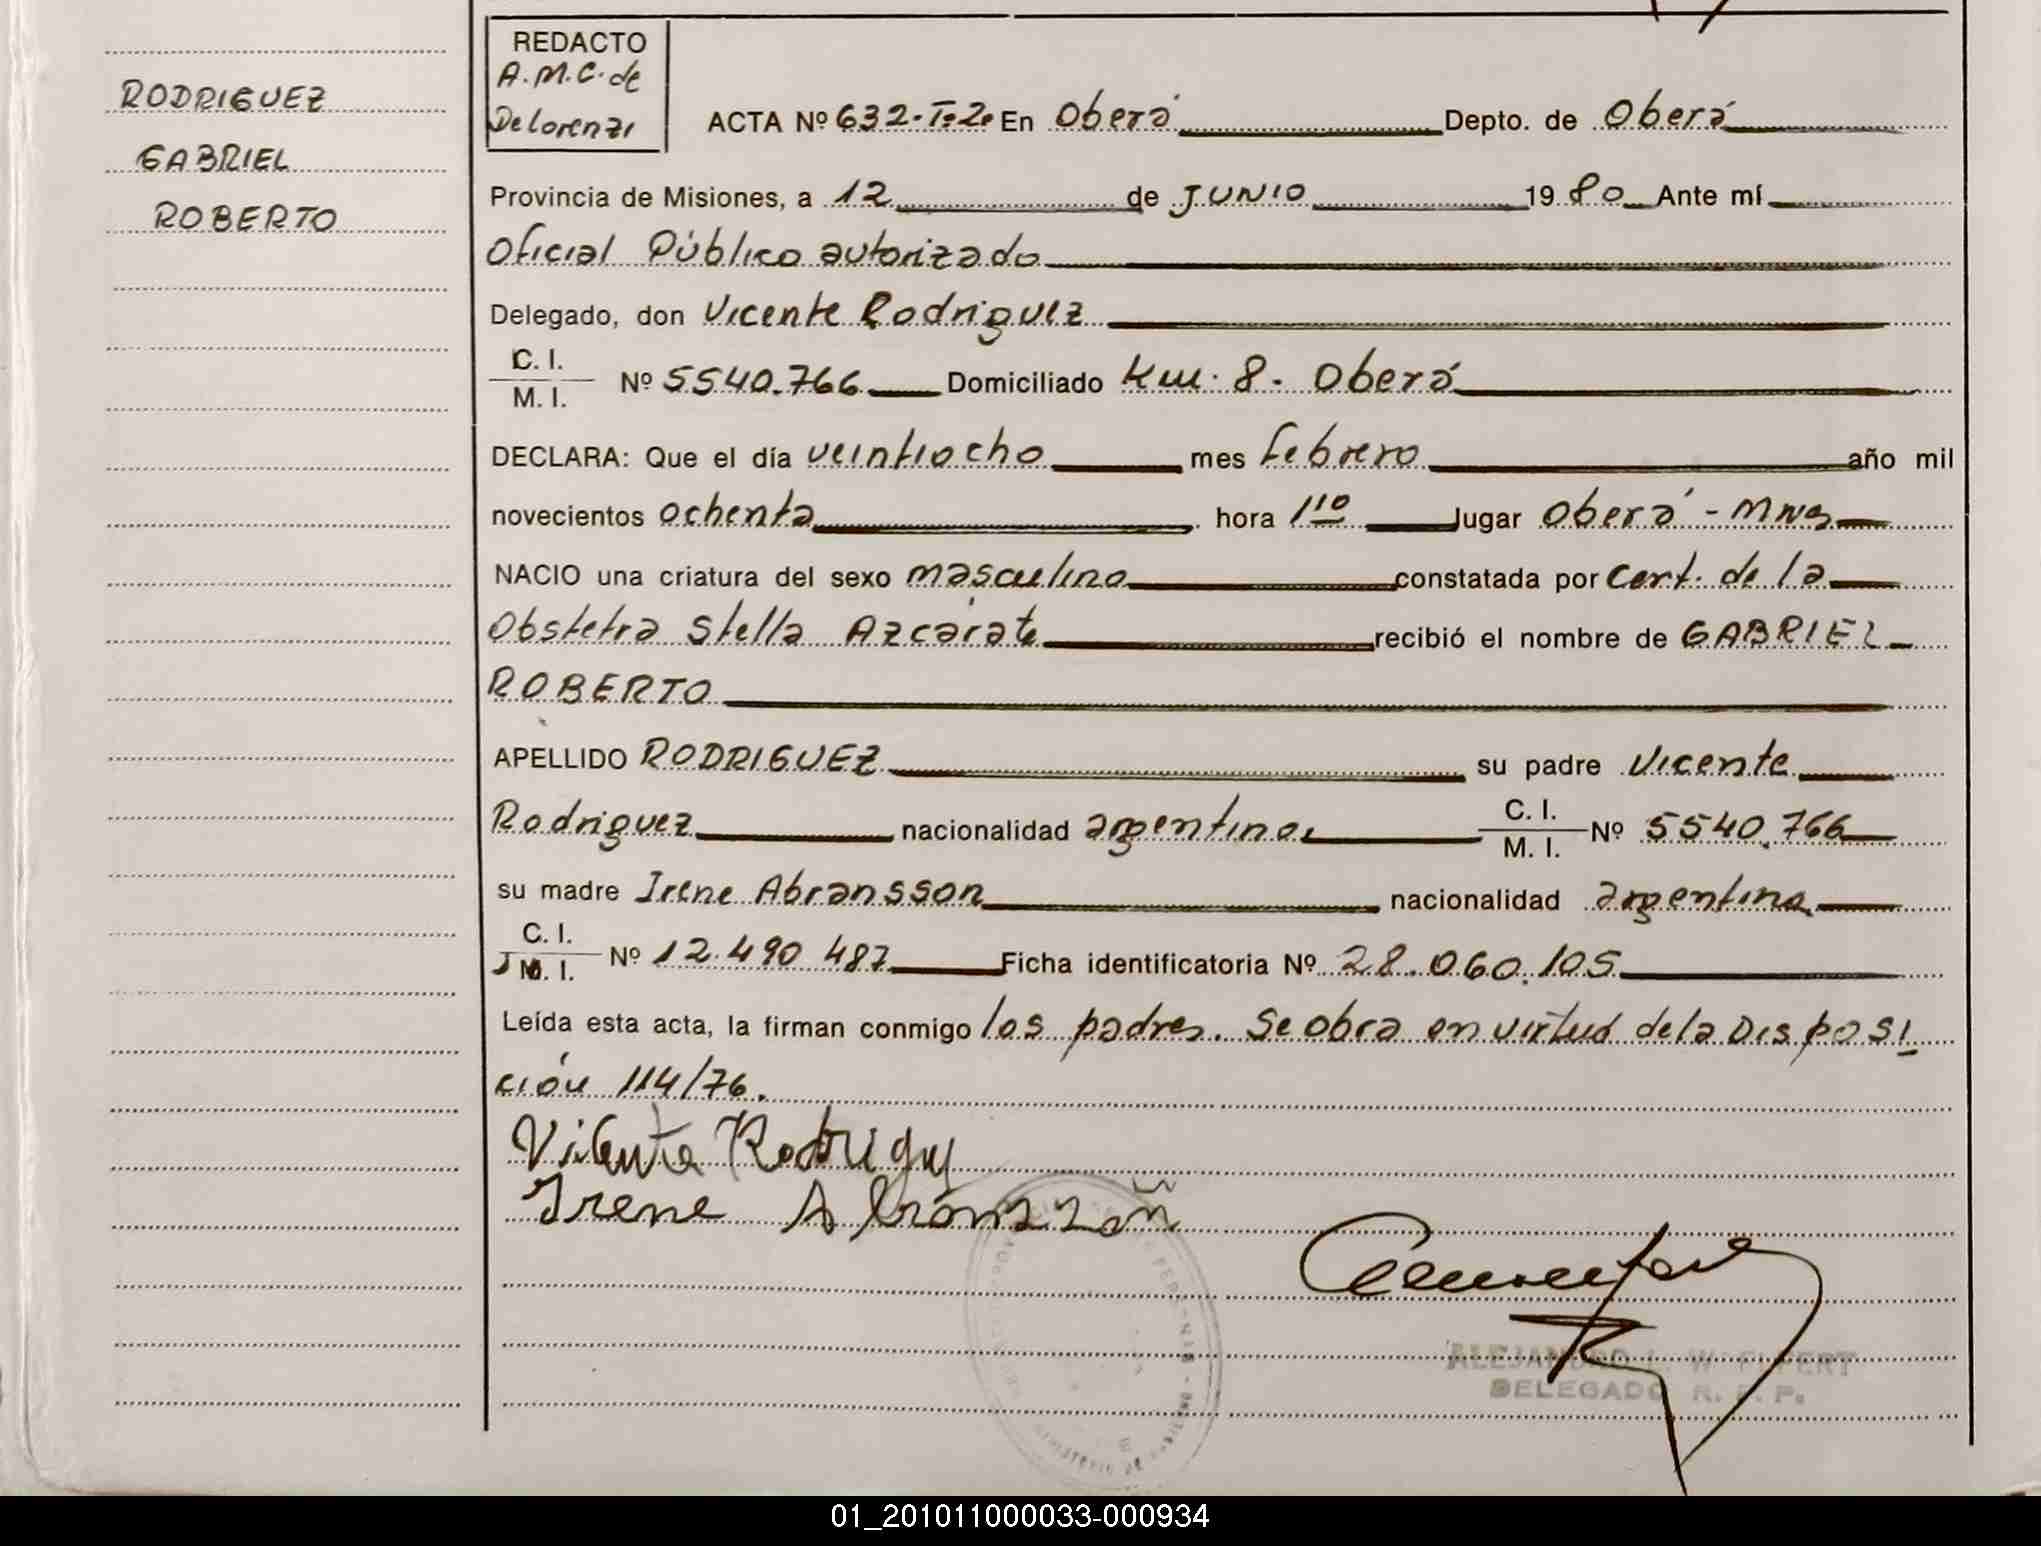 RODRIGUEZ
GABRIEL
ROBERTO
REDACTO
A.M.C. de
Delorenzi
ACTA Nº 632-Tº2º En Oberá Depto. de Oberá
Provincia de Misiones, a 12 de JUNIO 1980 Ante mí
Oficial Público autorizado
Delegado, don Vicente Rodriguez
C. I.
M. I. Nº 5540.766 Domiciliado Km. 8 - Oberá
DECLARA: Que el día veintiocho mes febrero año mil
novecientos ochenta hora 1 10 lugar Oberá - Mnes
NACIO una criatura del sexo masculino constatada por Cert. de la
Obstetra Stella Azcárate recibió el nombre de GABRIEL
ROBERTO
APELLIDO RODRIGUEZ su padre Vicente
Rodriguez nacionalidad argentina C. I.
M. I. Nº 5540.766
su madre Irene Abransson nacionalidad argentina
C. I.
M. I. Nº 12.490 487 Ficha identificatoria Nº 28.060.105
Leída esta acta, la firman conmigo los padres. Se obra en virtud de la Disposi
ción 114/76.
Vicente Rodrigu
Irene
ALEJANDRO L.
DELEGADO R. P. P.
01_201011000033-000934